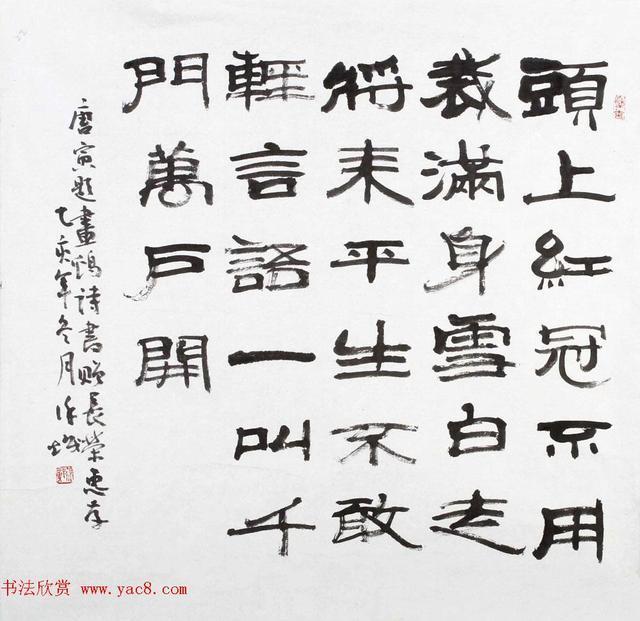 頭上紅冠不用
裁滿身雪白走
將来平生不敢
輕言語一叫千
門萬户開
唐寅題畫鸡詩書贈長榮惠存
乙亥年冬月
书法欣赏 www.yac8.com